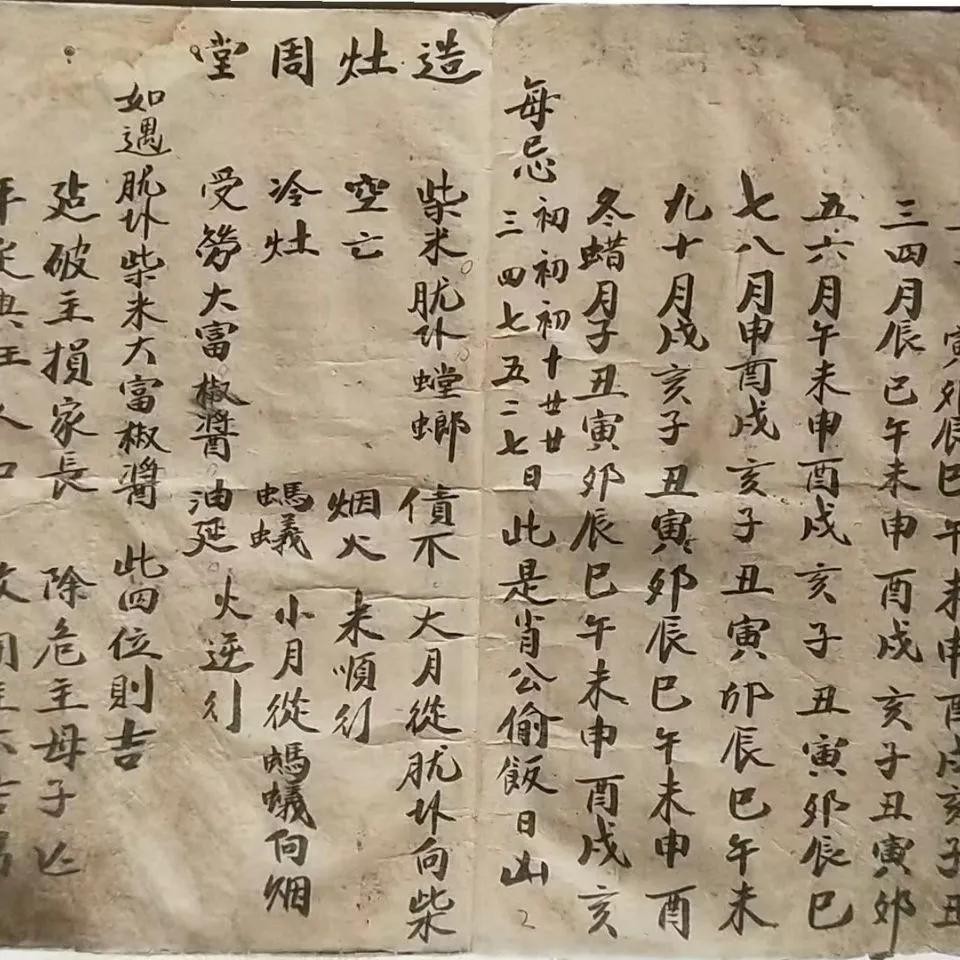 寅卯辰巳午未申酉戌亥子丑
三四月辰巳午未申酉戌亥子丑寅卯
五六月午未申酉戌亥子丑寅卯辰巳
七八月申酉戌亥子丑寅卯辰巳午未
九十月戌亥子丑寅卯辰巳午未申酉
冬蜡月子丑寅卯辰巳午未申酉戌亥
每忌初三初四初七十五廿二廿七日此是肖公偷飯日凶
造灶周堂
柴米肬卟螳螂債不大月從肬卟向柴
空亡烟火来順行
冷灶螞蟻小月從螞蟻向烟
受勞大富椒醬油延火逆行
如遇肬卟柴米大富椒醬此四位則吉
破主損家長除危主母子亡